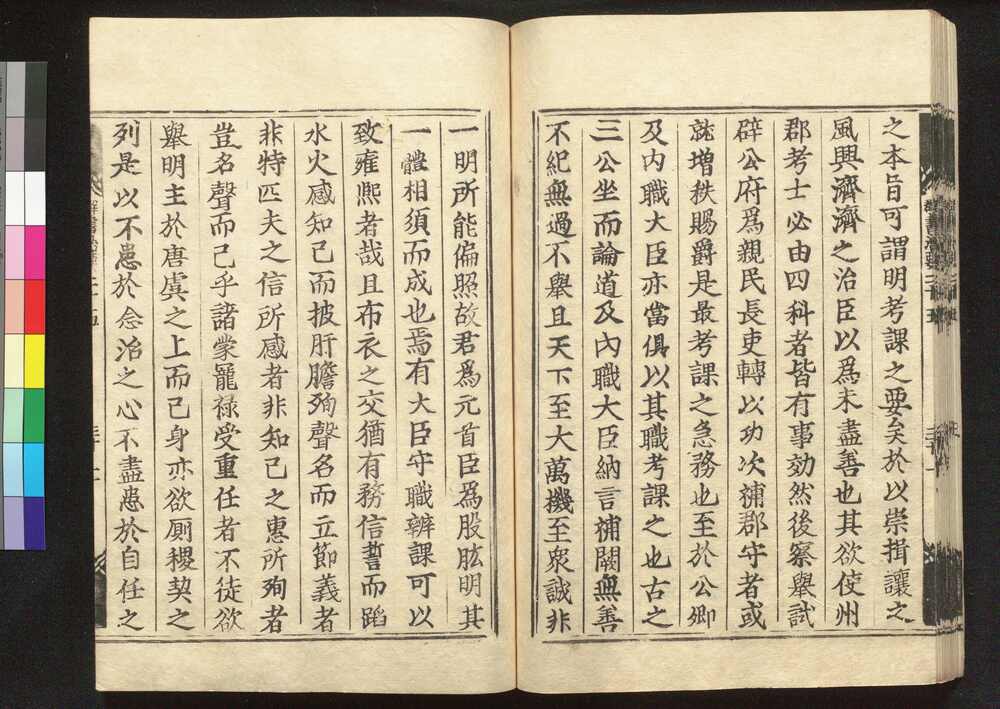 之本旨可謂明考課之要矣於以崇揖讓之
風興濟濟之治臣以爲未盡善也其欲使州
郡考士必由四科者皆有事効然後察舉試
辟公府爲親民長吏轉以功次補郡守者或
就增秩賜爵是最考課之急務也至於公卿
及内職大臣亦當俱以其職考課之也古之
三公坐而論道及內職大臣納言補闕無善
不紀無過不舉且天下至大萬機至衆誠非
一明所能偏照故君爲元首臣爲股肱明其
一體相須而成也焉有大臣守職辨課可以
致雍熙者哉且布衣之交猶有務信誓而蹈
水火感知己而披肝膽殉聲名而立節義者
非特匹夫之信所感者非知己之惠所殉者
豈名聲而已乎諸蒙寵禄受重任者不徒欲
舉明主於唐虞之上而已身亦欲厠稷契之
列是以不患於念治之心不盡患於自任之